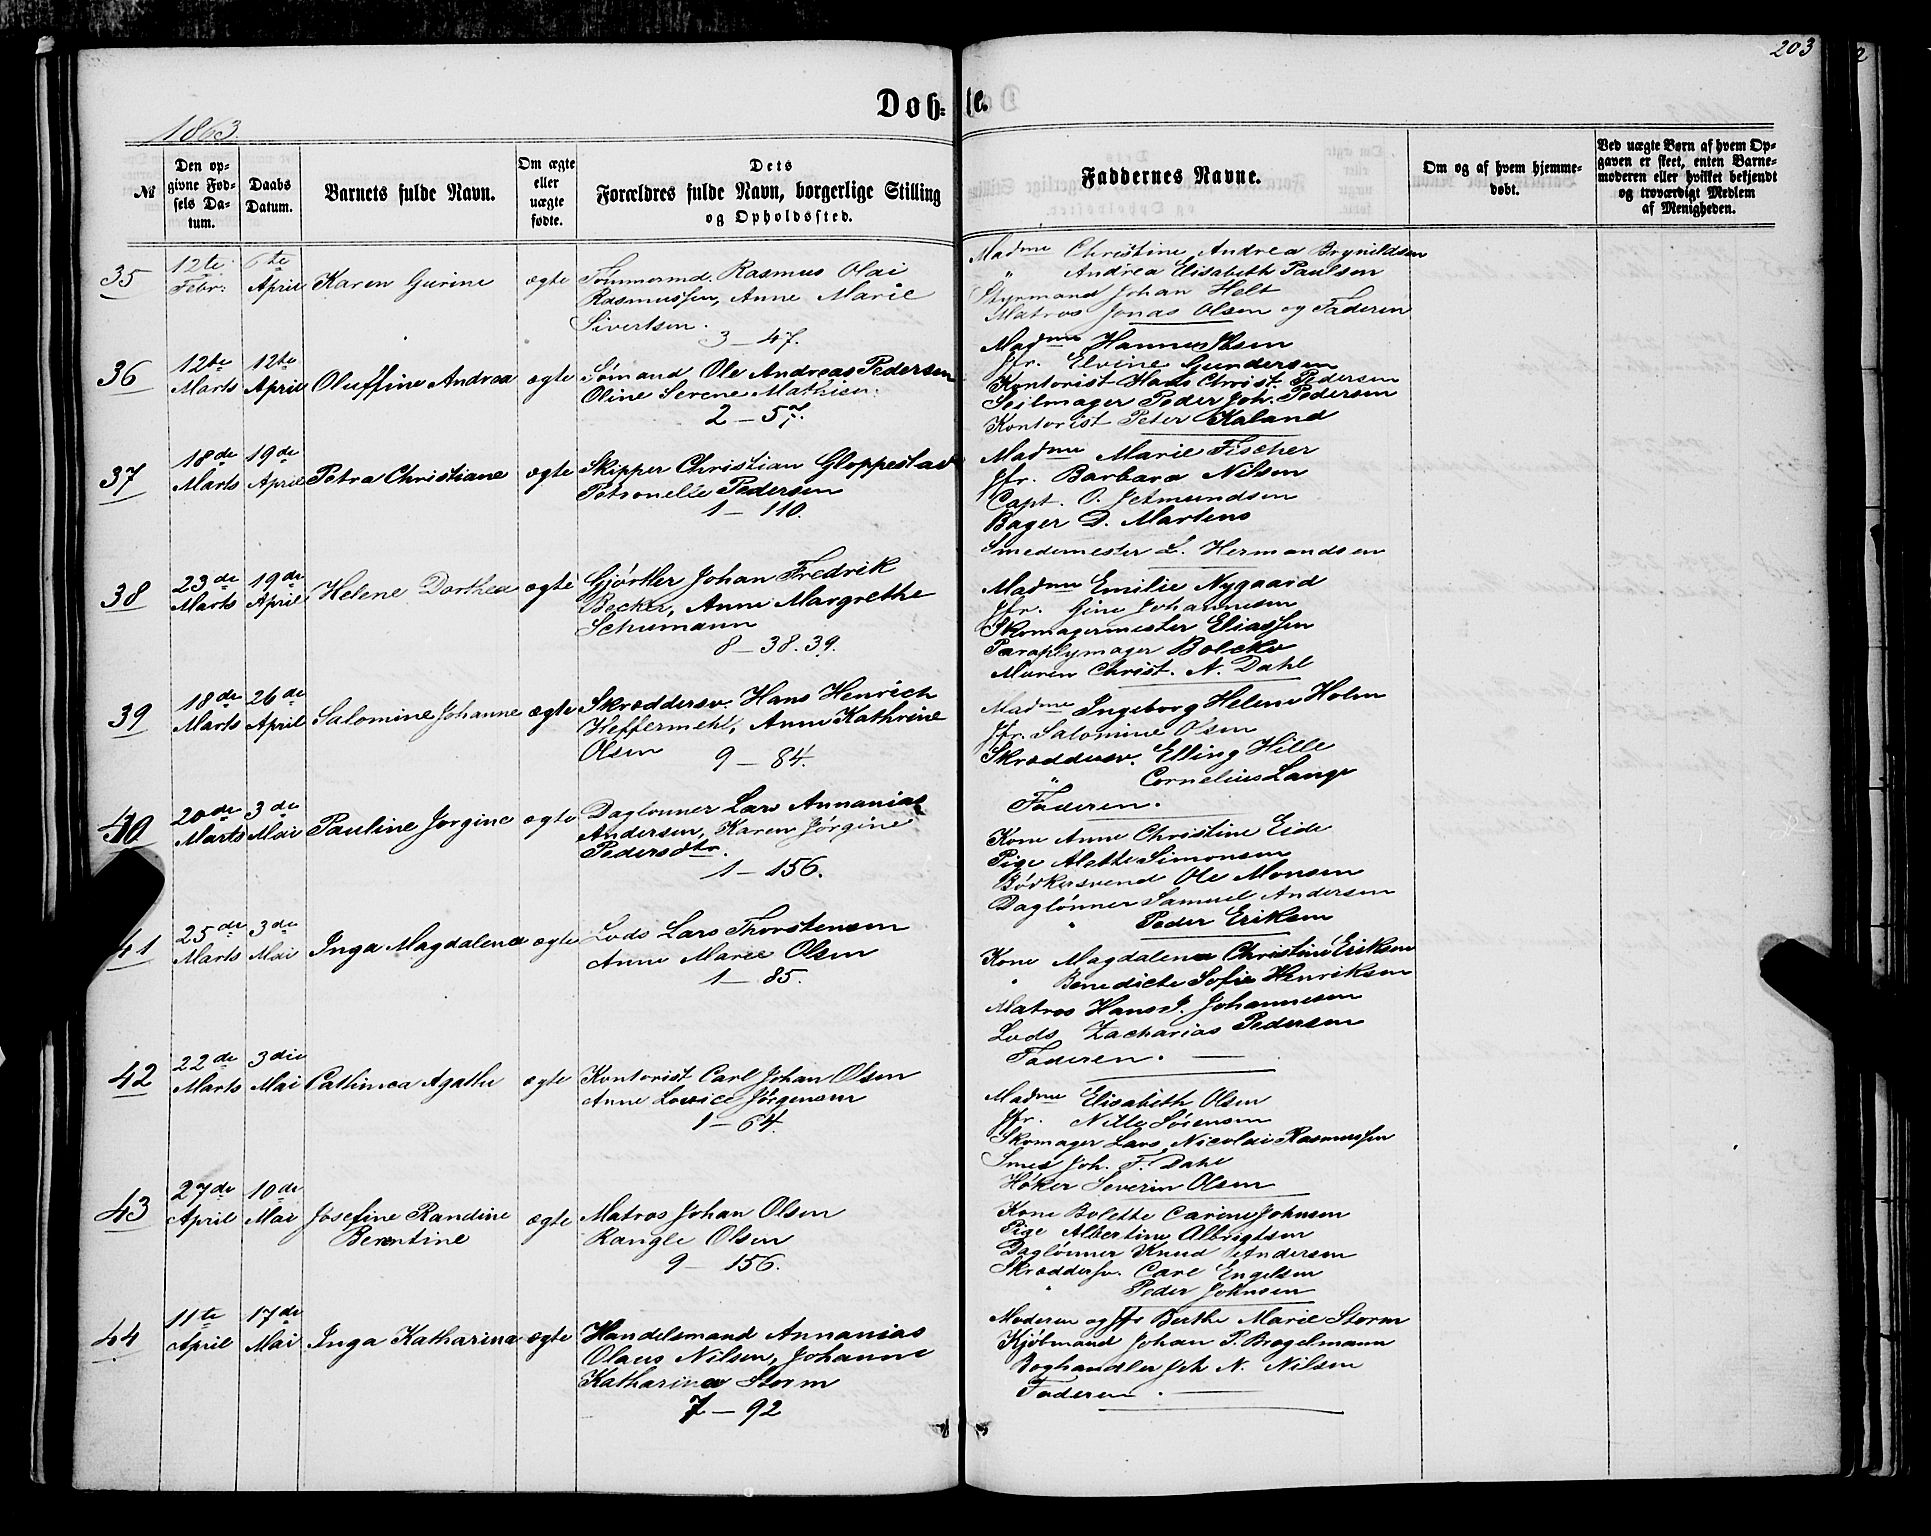 203
Døb- te.
1863.
№
Den opgivne Fødsels Datum.
Daabs Datum.
Barnets fulde Navn.
Om ægte eller uægte fødte.
Dets Forældres fulde Navn, borgerlige Stilling og Opholdssted.
Faddernes Navne.
Om og af hvem hjemmedøbt.
Ved uægte Børn af hvem Opgaven er skeet, enten Barnemoderen eller hvilket bekjendt og troværdigt Medlem af Menigheden.
35 12te Febr: 6te April Karen Gurine ægte Tømmermd. Rasmus Olai
Rasmussen, Anne Marie
Sivertsen.
3 – 47.
Madme Christine Andrea Brynildsen
" Andrea Elisabeth Paulsen
Styrmand Johan Helt
Matros Jonas Olsen og Faderen
36 12te Marts 12te April Oluffine Andrea ægte Sømand Ole Andreas Pedersen
Oline Serene Mathisen.
2 – 57.
Madme Hanne Ibsen
Jfr. Elvine Gundersen
Kontorist Hans Christ. Pedersen
Seilmager Peder Joh. Pedersen
Kontorist Peter Kaland
37 18de Marts 19de April Petra Christiane ægte Skipper Christian Gloppestad
Petronelle Pedersen
1 – 110.
Madme Marie Fischer
Jfr. Barbara Nilsen
Capt. O. Jetmundsen
Bager D. Martens
Smedemester L. Hermandsen
38 23de Marts 19de April Helene Dorthea ægte Gjørtler Johan Fredrik
Becker, Anne Margrethe
Schumann
8 – 38.39.
Madme Emilie Nygaard
Jfr. Gine Johannesen
Skomagermester Eliassen
Paraplymager Bolcke
Murer Christ. N. Dahl
39 18de Marts 26de April Salomine Johanne ægte Skræddersv. Hans Henrich
Heffermehl, Anne Kathrine
Olsen
9 – 84.
Madme Ingeborg Helene Holm
Jfr. Salomine Olsen
Skræddersv. Elling Hille
" Cornelius Lange
Faderen.
40 20de Marts 3de Mai Pauline Jørgine ægte Daglønner Lars Annanias
Andersen, Karen Jørgine
Pedersdtr.
1 – 156.
Kone Anne Christine Eide
Pige Alette Simonsen
Bødkersvend Ole Monsen
Daglønner Samuel Andersen
" Peder Eriksen
41 25de Marts 3de Mai Inga Magdalena ægte Lods Lars Thorstensen
Anne Marie Olsen
1 – 85.
Kone Magdalena Christine Eriksen
" Benedicte Sofie Henriksen
Matros Hans J. Johannesen
Lods Zacharias Pedersen
Faderen.
42 22de Marts 3die Mai Cathinca Agathe ægte Kontorist Carl Johan Olsen
Anne Lovice Jørgensen
1 – 64.
Madme Elisabeth Olsen
Jfr. Nille Sørensen
Skomager Lars Nicolai Rasmussen
Smed Joh. F. Dahl
Høker Severin Olsen
43 27de April 10de Mai Josefine Randine
Berentine ægte Matros Johan Olsen
Rangle Olsen
9 – 156.
Kone Bolette Carine Johnsen
Pige Albertine Albrigtsen
Daglønner Knud Andersen
Skræddersv. Carl Engelsen
" Peder Johnsen
44 11te April 17de Mai Inga Katharina ægte Handelsmand Annanias
Olaus Nilsen, Johanne
Katharina Storm
7 – 92
Moderen og Jfr Berthe Marie Storm
Kjøbmand Johan P. Brøgelmann
Boghandler Joh N. Nilsen
Faderen.